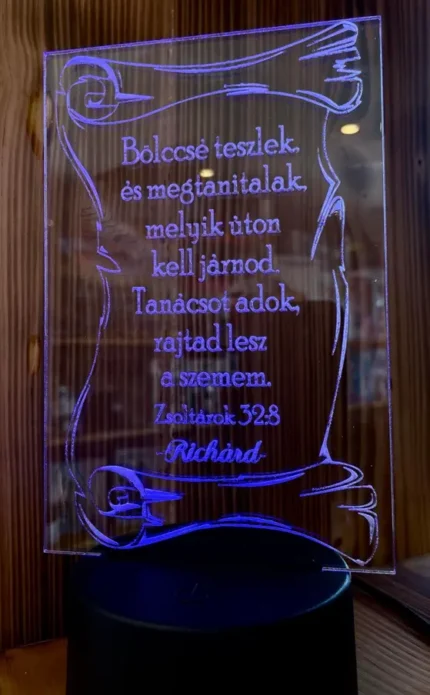 Bölccsé teszlek,
és megtanítalak,
melyik úton
kell járnod.
Tanácsot adok,
rajtad lesz
a szemem.
Zsoltárok 32:8
-Richárd-